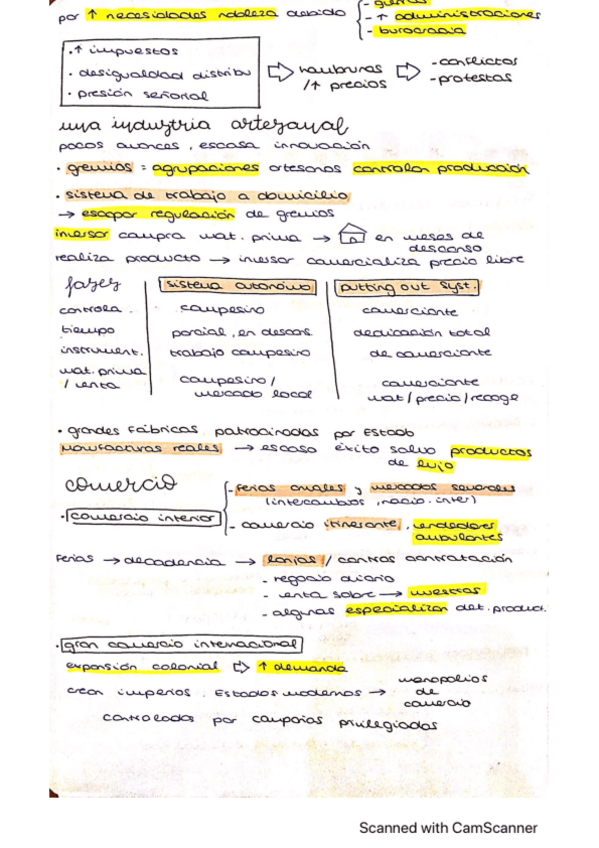 - guerras
por ↑ necesidades nobleza debido
- ↑ administraciones
- burocracia
·↑ impuestos
· desigualdad distribu
· presión señorial
hambrunas
/↑ precios
- conflictos
- protestas
una industria artesanal
pocos avances, escasa innovación
· gremios = agrupaciones artesanos controlan producción
· sistema de trabajo a domicilio
→ escapar regulación de gremios
inversor compra mat. prima → en meses de descanso
realiza producto → inversor comercializa precio libre
fases | sistema autónomo | putting out syst.
controla. campesino comerciante
tiempo parcial, en descans. dedicación total
instrument. trabajo campesino de comerciante
mat. prima / venta campesino / mercado local comerciante mat/precio/recoge
· grandes fábricas patrocinadas por Estado
Manufacturas reales → escaso éxito salvo productos de lujo
comercio
- ferias anuales y mercados semanales
(intercambios, nacio. inter)
· comercio interior
- comercio itinerante, vendedores ambulantes
Ferias → decadencia → lonjas / centros contratación
- negocio diario
- venta sobre → muestras
- algunas especializan det. product.
· gran comercio internacional
expansión colonial ⇒ ↑ demanda
crean imperios. Estados modernos → monopolios de comercio
controlados por compañias privilegiadas
Scanned with CamScanner